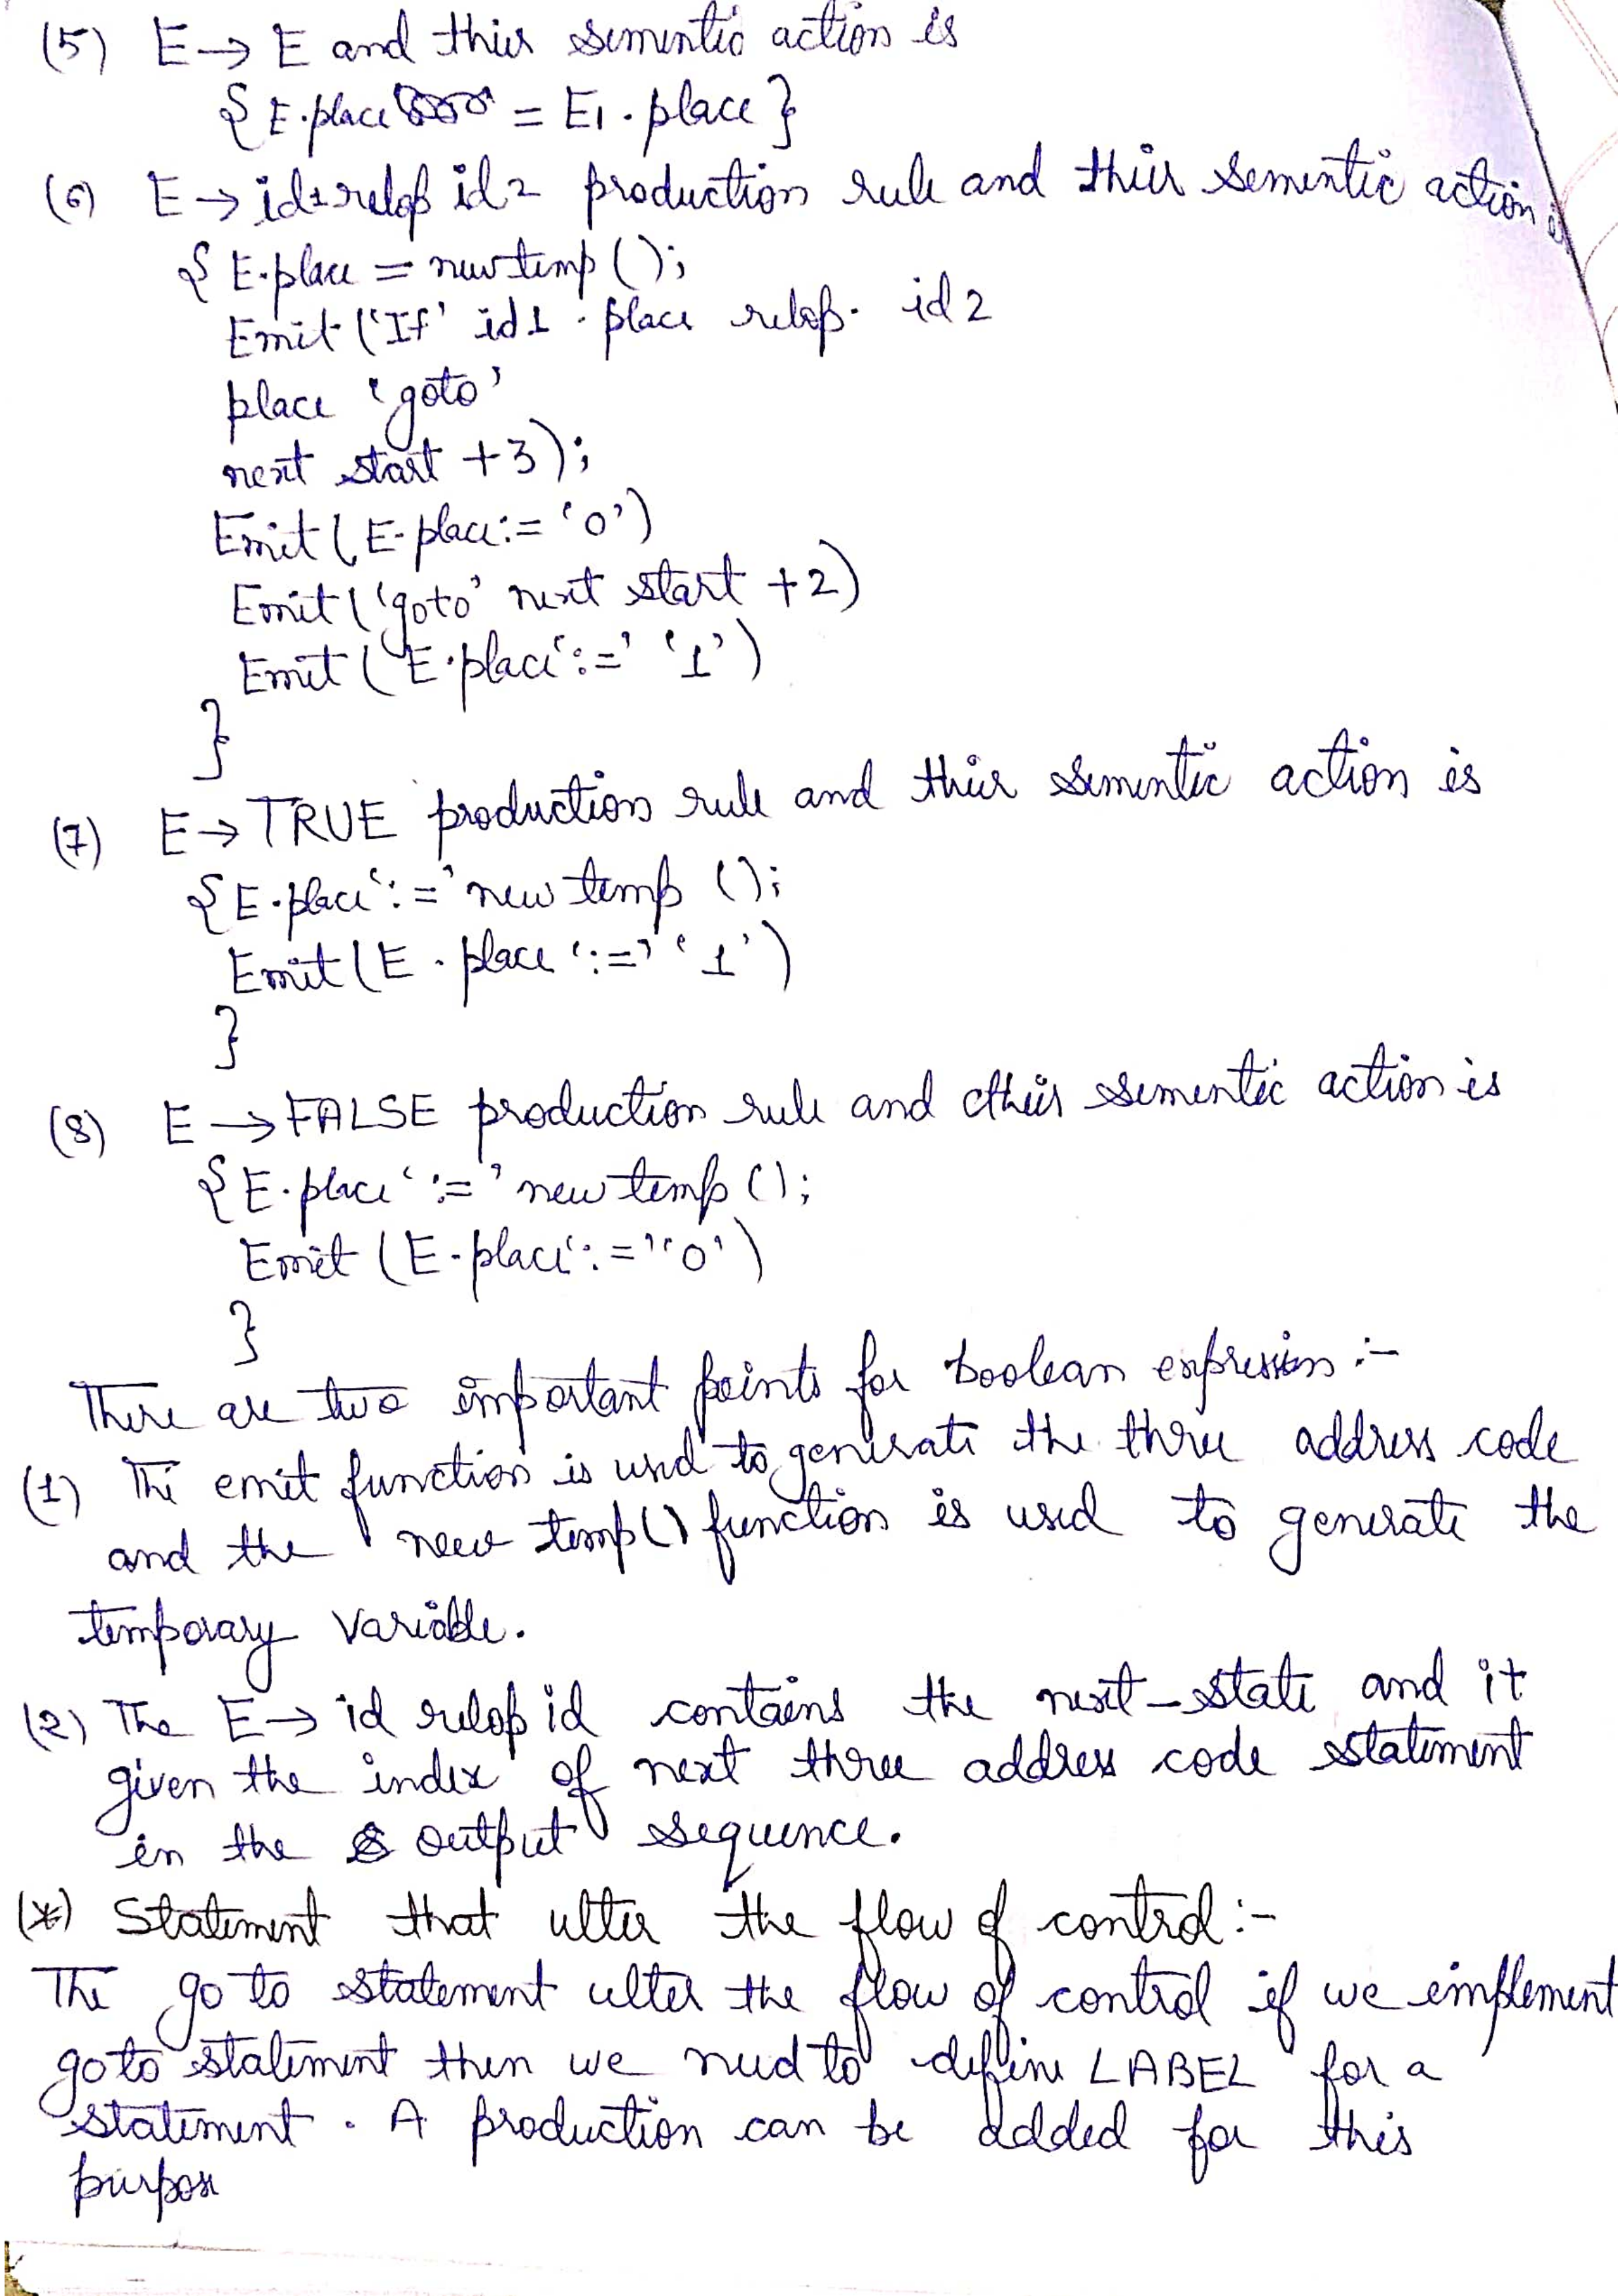 (5) E→ E and thier sementic action is
{E.place = E1.place}
(6) E→id1 relop id2 production rule and thier sementic action is
{E.place = newtemp();
Emit ('If' id1 . place relop. id2
place 'goto'
next start +3);
Emit (E.place:= '0')
Emit ('goto' next start +2)
Emit (E.place ':=' '1')
}
(7) E→TRUE production rule and thier sementic action is
{E.place ':=' new temp ();
Emit (E . place ':=' '1')
}
(8) E→FALSE production rule and thier sementic action is
{E.place ':=' new temp ();
Emit (E.place ':=' '0')
}
There are two important points for boolean expression :-
(1) The emit function is used to generate the three address code
and the new temp() function is used to generate the
temporary variable.
(2) The E→ id relop id contains the next-state and it
given the index of next three address code statement
in the output sequence.
(*) Statement that ulter the flow of control :-
The go to statement ulter the flow of control if we implement
go to statement then we need to define LABEL for a
statement . A production can be added for this
purpose